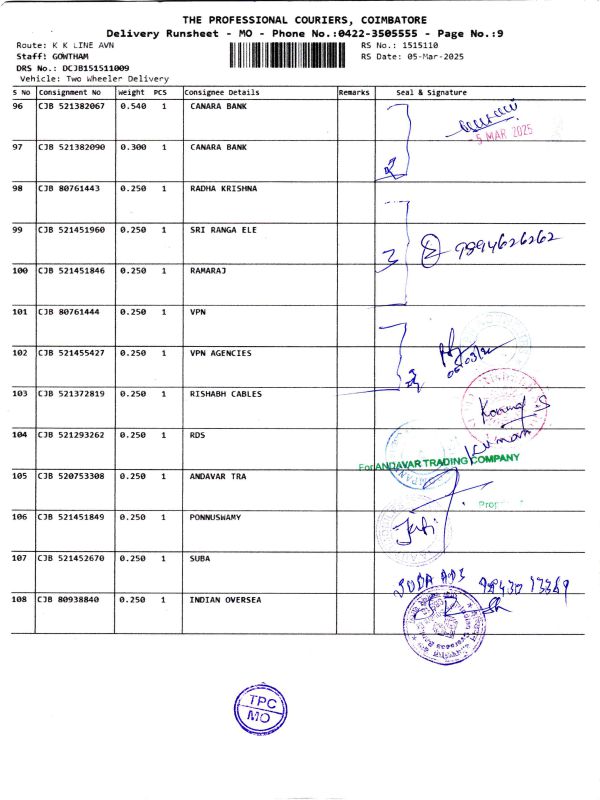 THE PROFESSIONAL COURIERS, COIMBATORE
Delivery Runsheet - MO - Phone No.:0422-3505555 - Page No.:9
Route: K K LINE AVN RS No.: 1515110
Staff: GOWTHAM RS Date: 05-Mar-2025
DRS No.: DCJB151511009
Vehicle: Two Wheeler Delivery
S No Consignment No Weight PCS Consignee Details Remarks Seal & Signature
96 CJB 521382067 0.540 1 CANARA BANK
- 5 MAR 2025
97 CJB 521382090 0.300 1 CANARA BANK
2
98 CJB 80761443 0.250 1 RADHA KRISHNA
99 CJB 521451960 0.250 1 SRI RANGA ELE
3 9894626262
100 CJB 521451846 0.250 1 RAMARAJ
101 CJB 80761444 0.250 1 VPN
102 CJB 521455427 0.250 1 VPN AGENCIES
103 CJB 521372819 0.250 1 RISHABH CABLES
104 CJB 521293262 0.250 1 RDS
Kumar
For ANDAVAR TRADING COMPANY
105 CJB 520753308 0.250 1 ANDAVAR TRA
106 CJB 521451849 0.250 1 PONNUSWAMY
107 CJB 521452670 0.250 1 SUBA
SUBA ADS
108 CJB 80938840 0.250 1 INDIAN OVERSEA
TPC
MO